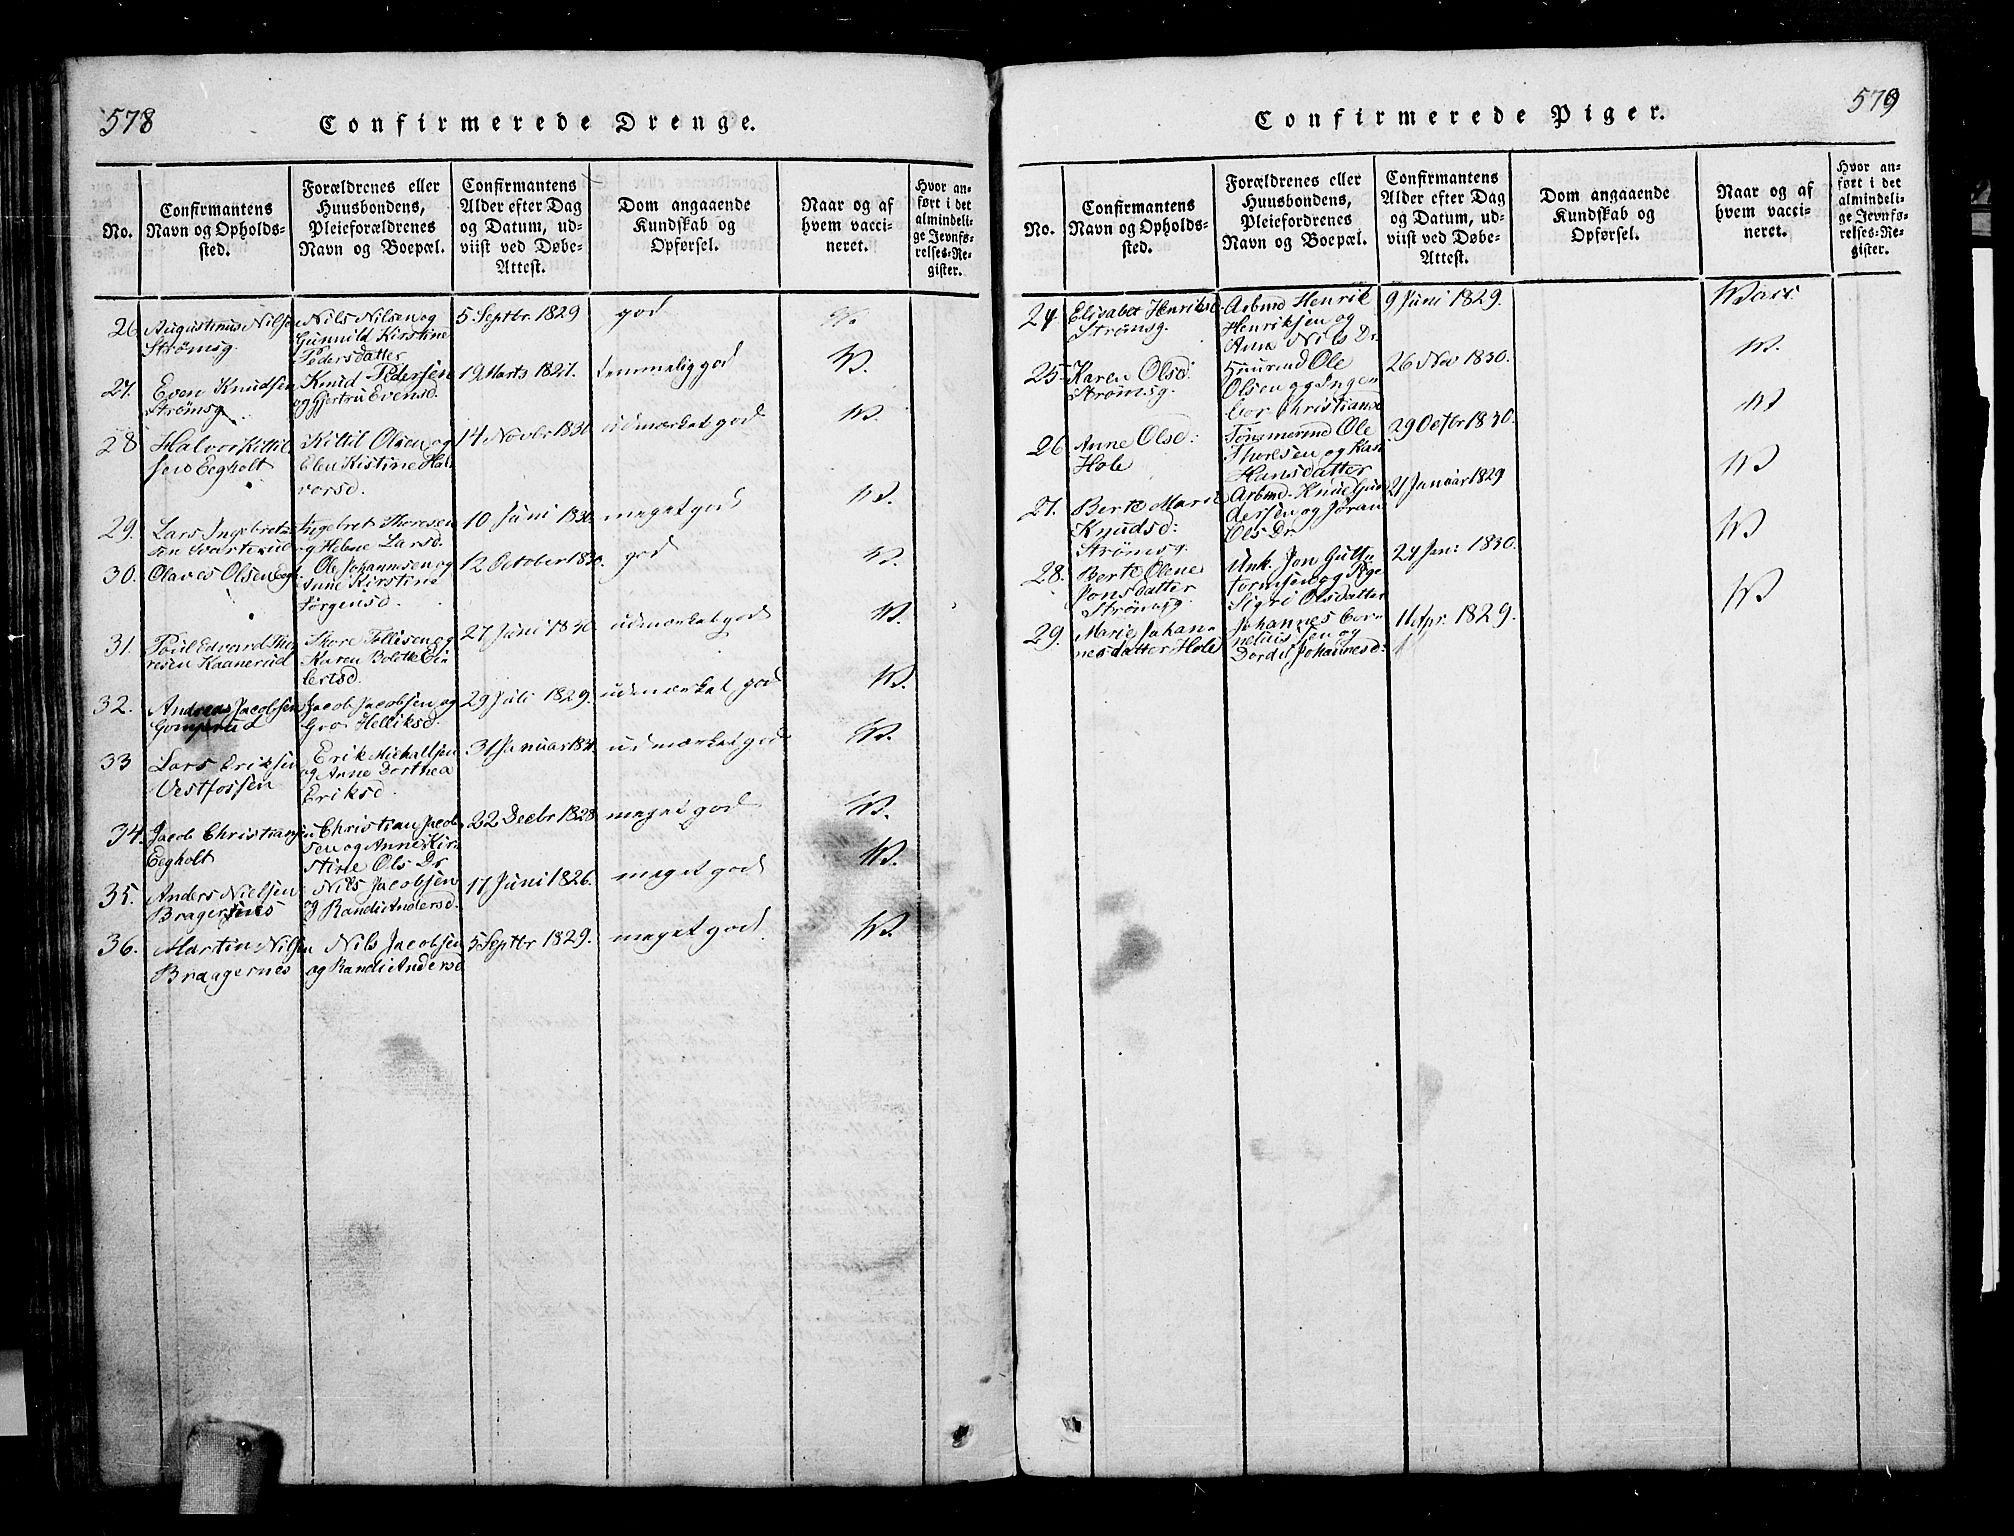 578
Confirmerede Drenge.
No.
Confirmantens
Navn og Opholds-
sted.
Forældrenes eller
Huusbondens,
Pleieforældrenes
Navn og Boepæl.
Confirmantens
Alder efter Dag
og Datum, ud-
viist ved Døbe-
Attest.
Dom angaaende
Kundskab og
Opførsel.
Naar og af
hvem vacci-
neret.
Hvor an-
ført i det
almindeli-
ge Jevnfø-
relses-Re-
gister.
26. Augustinus Nilsen
Strømsg.
Nils Nilsen og
Gunnild Kirstine
Pedersdatter
5 Septbr. 1829
god
W.
27. Even Knudsen
Strømsg.
Knud Pedersen
og Gjertru Evensd.
19 Marts 1827.
temmelig god
W.
28 Halvor Kittil
sen Eegholt
Kittil Olsen og
Elen Kistine Hal
vorsd.
14 Novbr 1830
udmærket god
W.
29. Lars Ingebret
sen Svarterud
Ingebret Thoresen
og Helene Larsd.
10 Juni 1830.
meget god
W.
30. Olaves Olsen
Ole Johannsen og
Anne Kirstine
Jørgensd.
12 October 1830.
god
W.
31. Paul Edvard Tho
resen Kaanerud
Thore Tollisen og
Karen Bolette Ein
ertsd.
27 Juni 1830
udmærket god
W.
32. Andreas Jacobsen
Gomperud
Jacob Jacobsen og
Gro Helliksd.
29 Juli 1829.
udmærket god
W.
33 Lars Eriksen
Vestfossen
Erik Mickallsen
og Anne Dorthea
Eriksd.
31 Januar 183
udmærket god
W.
34. Jacob Christiansen
Eegholt
Christian Jacob
sen og Anne Kir
stine Ols Dr
22 Decbr 1828
meget god
W.
35. Anders Nielsen
Bragernes
Nils Jacobsen
og Randi Andersd.
17 Juni 1826.
meget god
W.
36. Martin Nilsen
Braagernes
Nils Jacobsen
og Randi Andersd
5 Septbr 1829.
meget god.
W.
579
Confirmerede Piger.
No.
Confirmantens
Navn og Opholds-
sted.
Forældrenes eller
Huusbondens,
Pleiefordrenes
Navn og Boepæl.
Confirmantens
Alder efter Dag
og Datum, ud-
viist ved Døbe-
Attest.
Dom angaaende
Kundskab og
Opførsel.
Naar og af
hvem vacci-
neret.
Hvor an-
ført i det
almindeli-
ge Jevnfø-
relses-Re-
gister.
24. Elisabet Henriksd.
Strømsg.
Arbmd Henrik
Henriksen og
Ane Nils Dr
9 Juni 1829.
Wacc.
25. Karen Olsd:
Strømsg.
Ole
Olsen og Inge
bor Christians
26 Nov 1830.
W.
26 Anne Olsd:
Hole
Tømmermd Ole
Thoresen og Kari
Hansdatter
29 Octbr 1830.
W
27. Berte Marie
Knudsd:
Strømsg.
Arbmd. Knud Gun
dersen og Jøran
Ols Dr
21 Januar 1829
W
28. Berte Olene
Jonsdatter
Strømsg.
Unk. Jon Gutt
tormsen og Pige
Sigri Olsdatter
24 Jan: 1830.
W
29. Marie Johan-
nesdatter Hole
Johannes Cor-
neliussen og
Dordi Johannesd:
11 Apr. 1829.
W